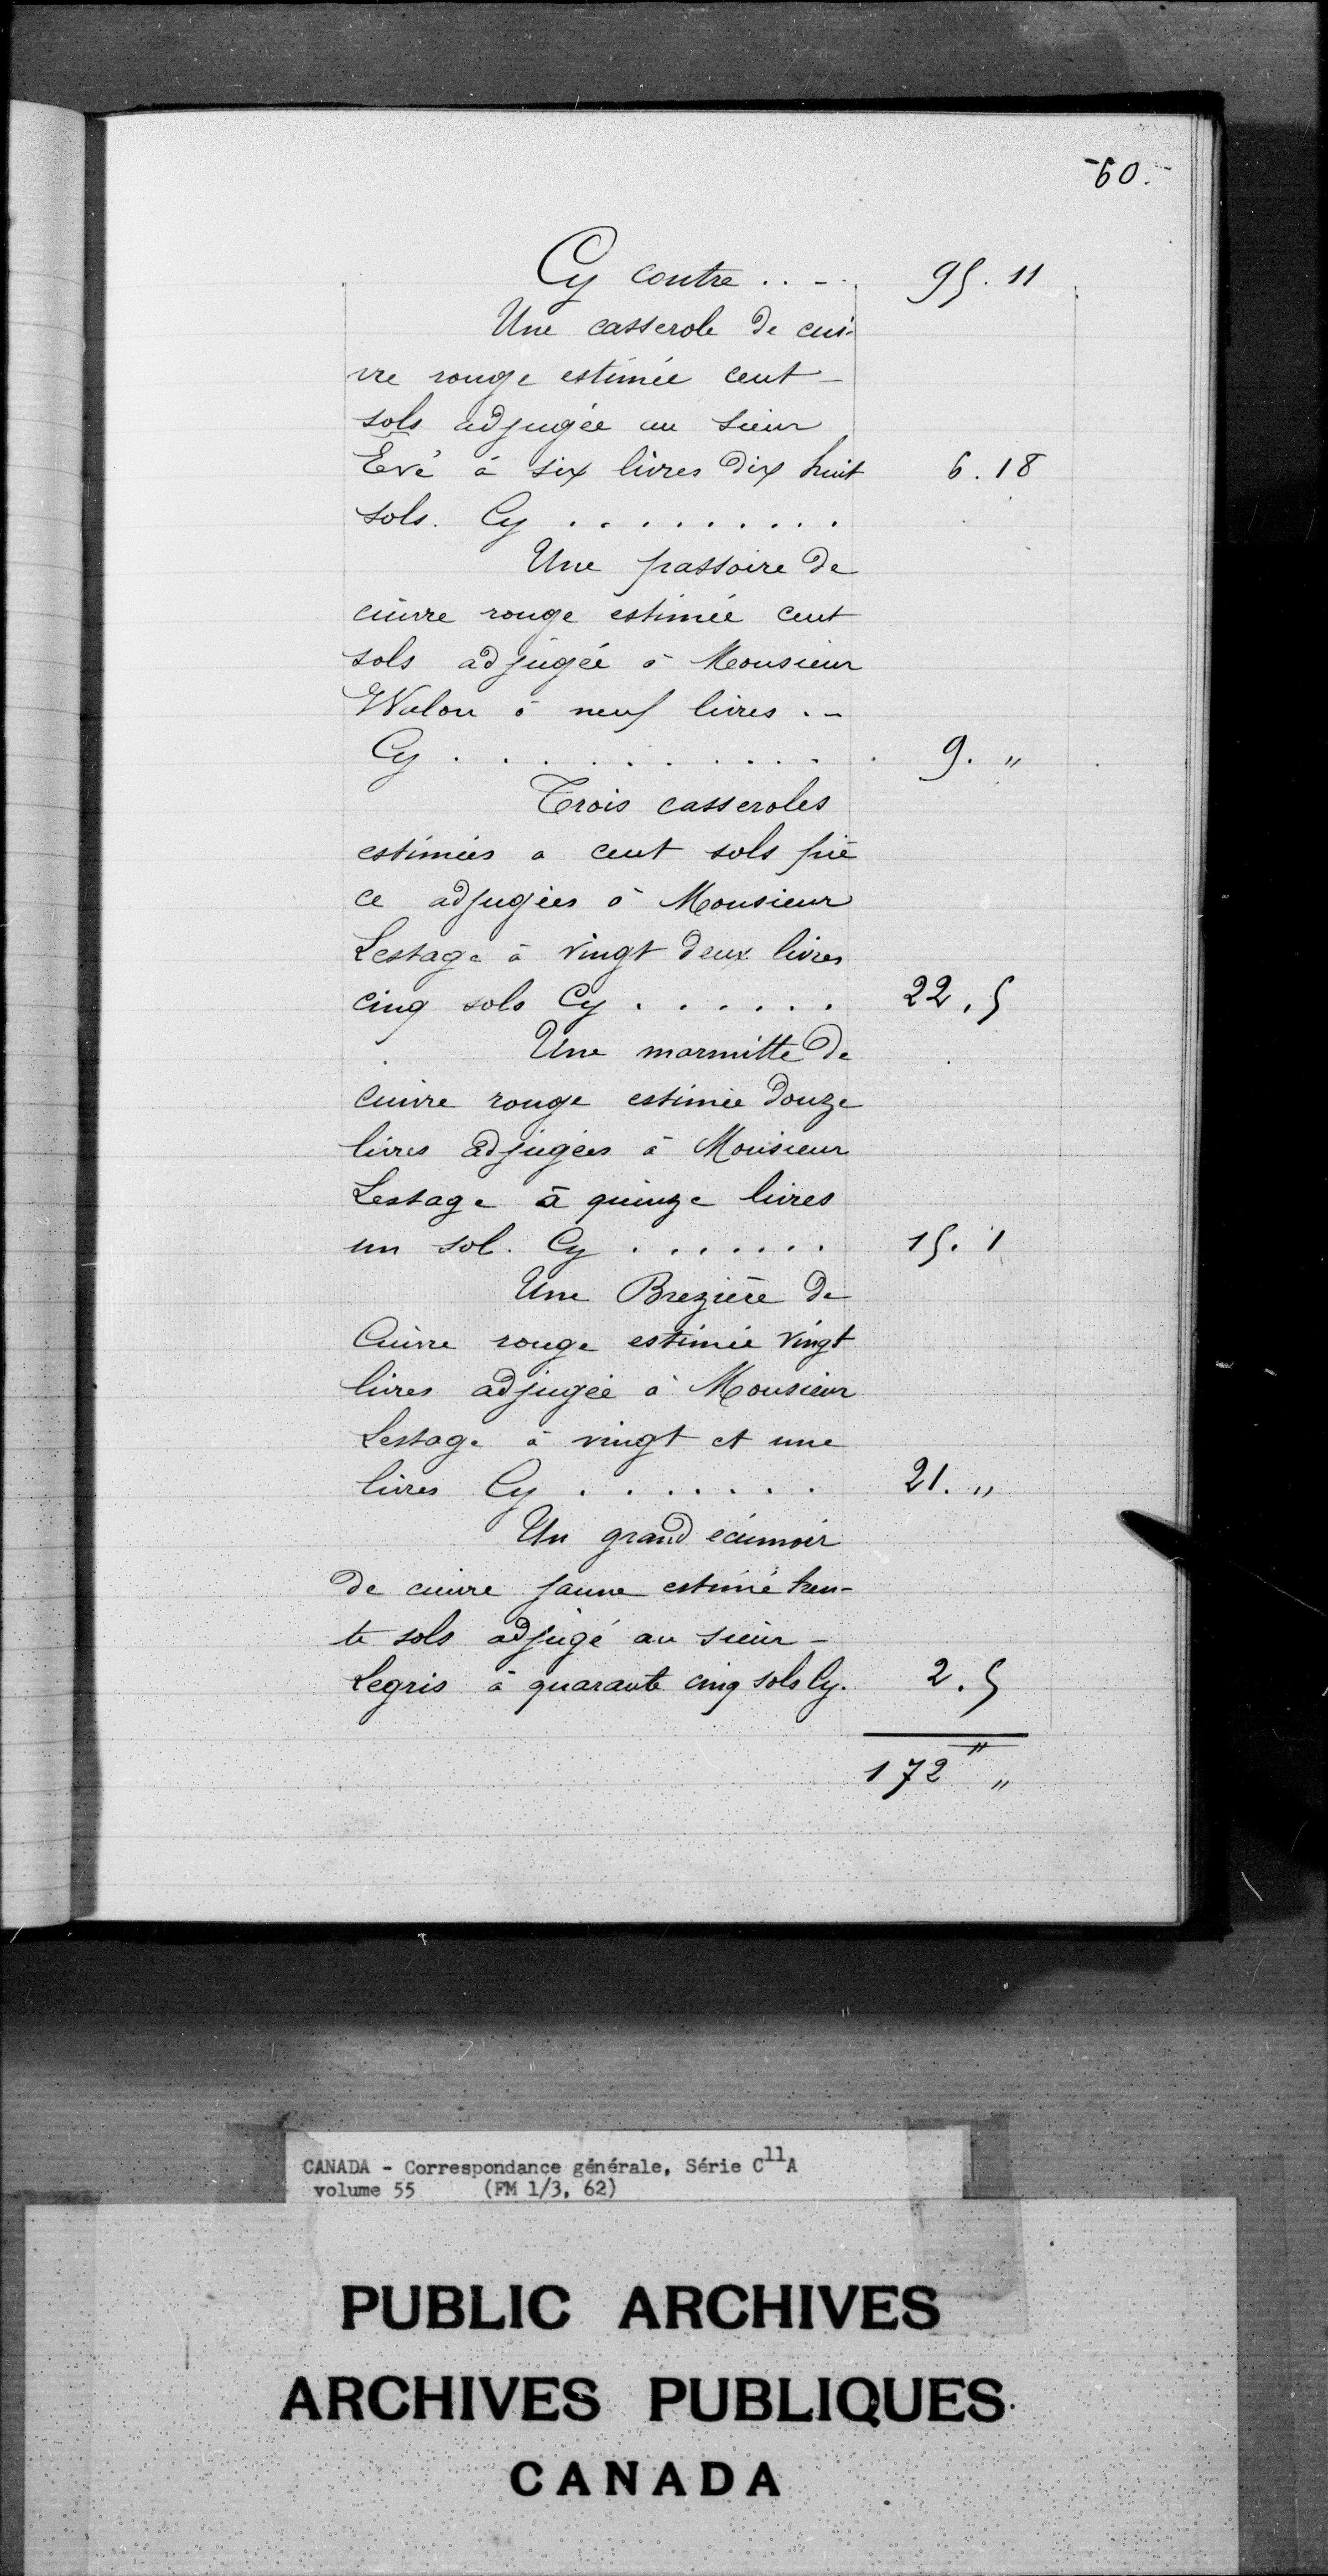 -60.-
Cy contre . . - . 95. 11
Une casserole de cui-
vre rouge estimée cent -
sols adjugée au sieur
Evé à six livres dix huit 6. 18
sols. Cy . . . . . . . . .
Une passoire de
cuivre rouge estimée cent
sols adjugée à Monsieur
Walon à neuf livres . -
Cy . . . . . . . . . . . 9. "
Trois casseroles
estimées a cent sols piè
ce adjugées à Monsieur
Lestage à vingt deux livres
cinq sols Cy . . . . . . 22. 5
Une marmitte de
cuivre rouge estimée douze
livres adjugées à Monsieur
Lestage à quinze livres
un sol. Cy . . . . . . . 15. 1
Une Brezière de
Cuivre rouge estimée vingt
livres adjugée à Monsieur
Lestage à vingt et une
livres Cy . . . . . . . 21. "
Un grand écumoir
de cuivre jaune estimé tren-
te sols adjugé au sieur -
Legris à quarante cinq sols Cy. 2. 5
172 " "
CANADA - Correspondance générale, Série C11A
volume 55 (FM 1/3, 62)
PUBLIC ARCHIVES
ARCHIVES PUBLIQUES
CANADA